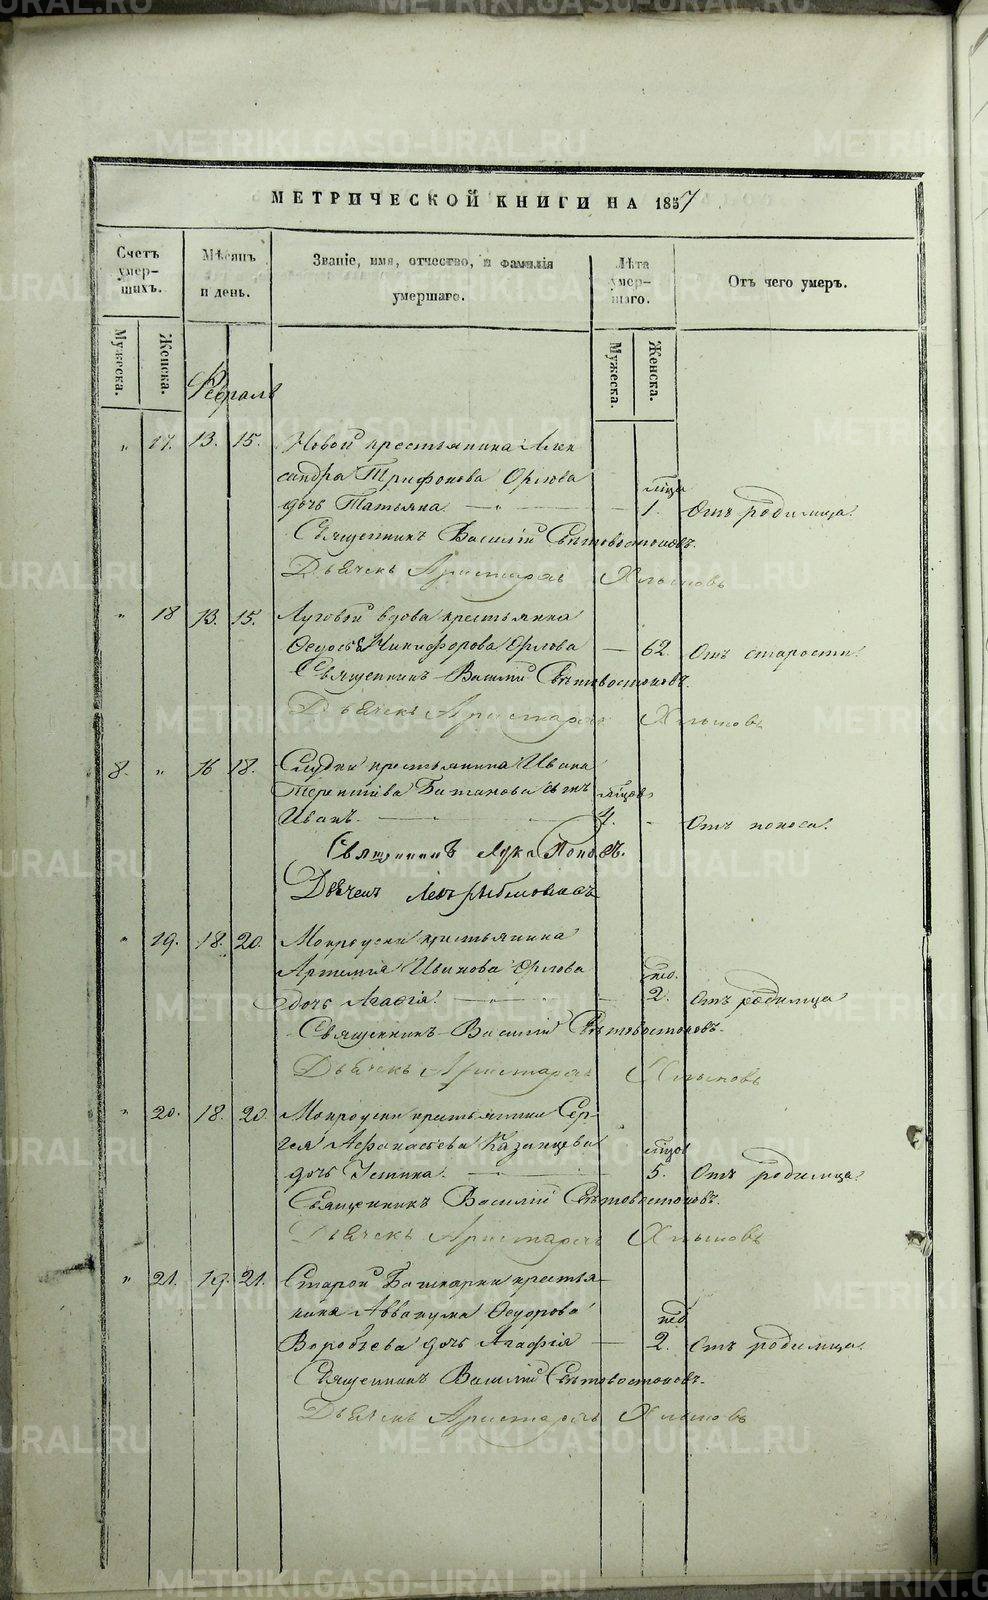 МЕТРИЧЕСКОЙ КНИГИ НА 1857
Счетъ умер- шихъ.
Мѣсяцъ и день.
Званіе, имя, отчество, и фамилія умершаго.
Лѣта умер- шаго.
Отъ чего умеръ.
Мужеска. Женска.
Мужеска. Женска.
Февраль
" 17. 13. 15. Новой крестьянина Алек
сандра Трифонова Орлова мѣсца
дочь Татьяна. — " — 1. Отъ родимца.
Священникъ Василій Свѣтовостоковъ.
Дьячекъ Аристархъ Хлыновъ
" 18 13. 15. Луговой вдова крестьянка
Ѳедосья Никифорова Орлова — 62. Отъ старости.
Священникъ Василій Свѣтовостоковъ.
Дьячекъ Аристархъ Хлыновъ
8. " 16 18. Слудки крестьянина Ивана
Терентіева Батакова сынъ мѣсцов
Иванъ. — 4. - Отъ поноса.
Священникъ Лука Поповъ.
Дьячекъ Левъ
" 19. 18. 20. крестьянина
Артемія Иванова Орлова нед.
дочь Агафія. — " — 2. Отъ родимца
Священникъ Василій Свѣтовостоковъ.
Дьячекъ Аристархъ Хлыновъ
" 20. 18. 20 крестьянина Сер-
гея Афанасьева Казанцева мѣсцов
дочь Устинка. — 5. Отъ родимца.
Священникъ Василій Свѣтовостоковъ.
Дьячекъ Аристархъ Хлыновъ
" 21. 19. 21. Старой Башкарки крестья
нина Аввакума Ѳедорова нед
Воробьева дочь Агафія — 2. Отъ родимца.
Священникъ Василій Свѣтовостоковъ.
Дьячекъ Аристархъ Хлыновъ
METRIKI.GASO-URAL.RU